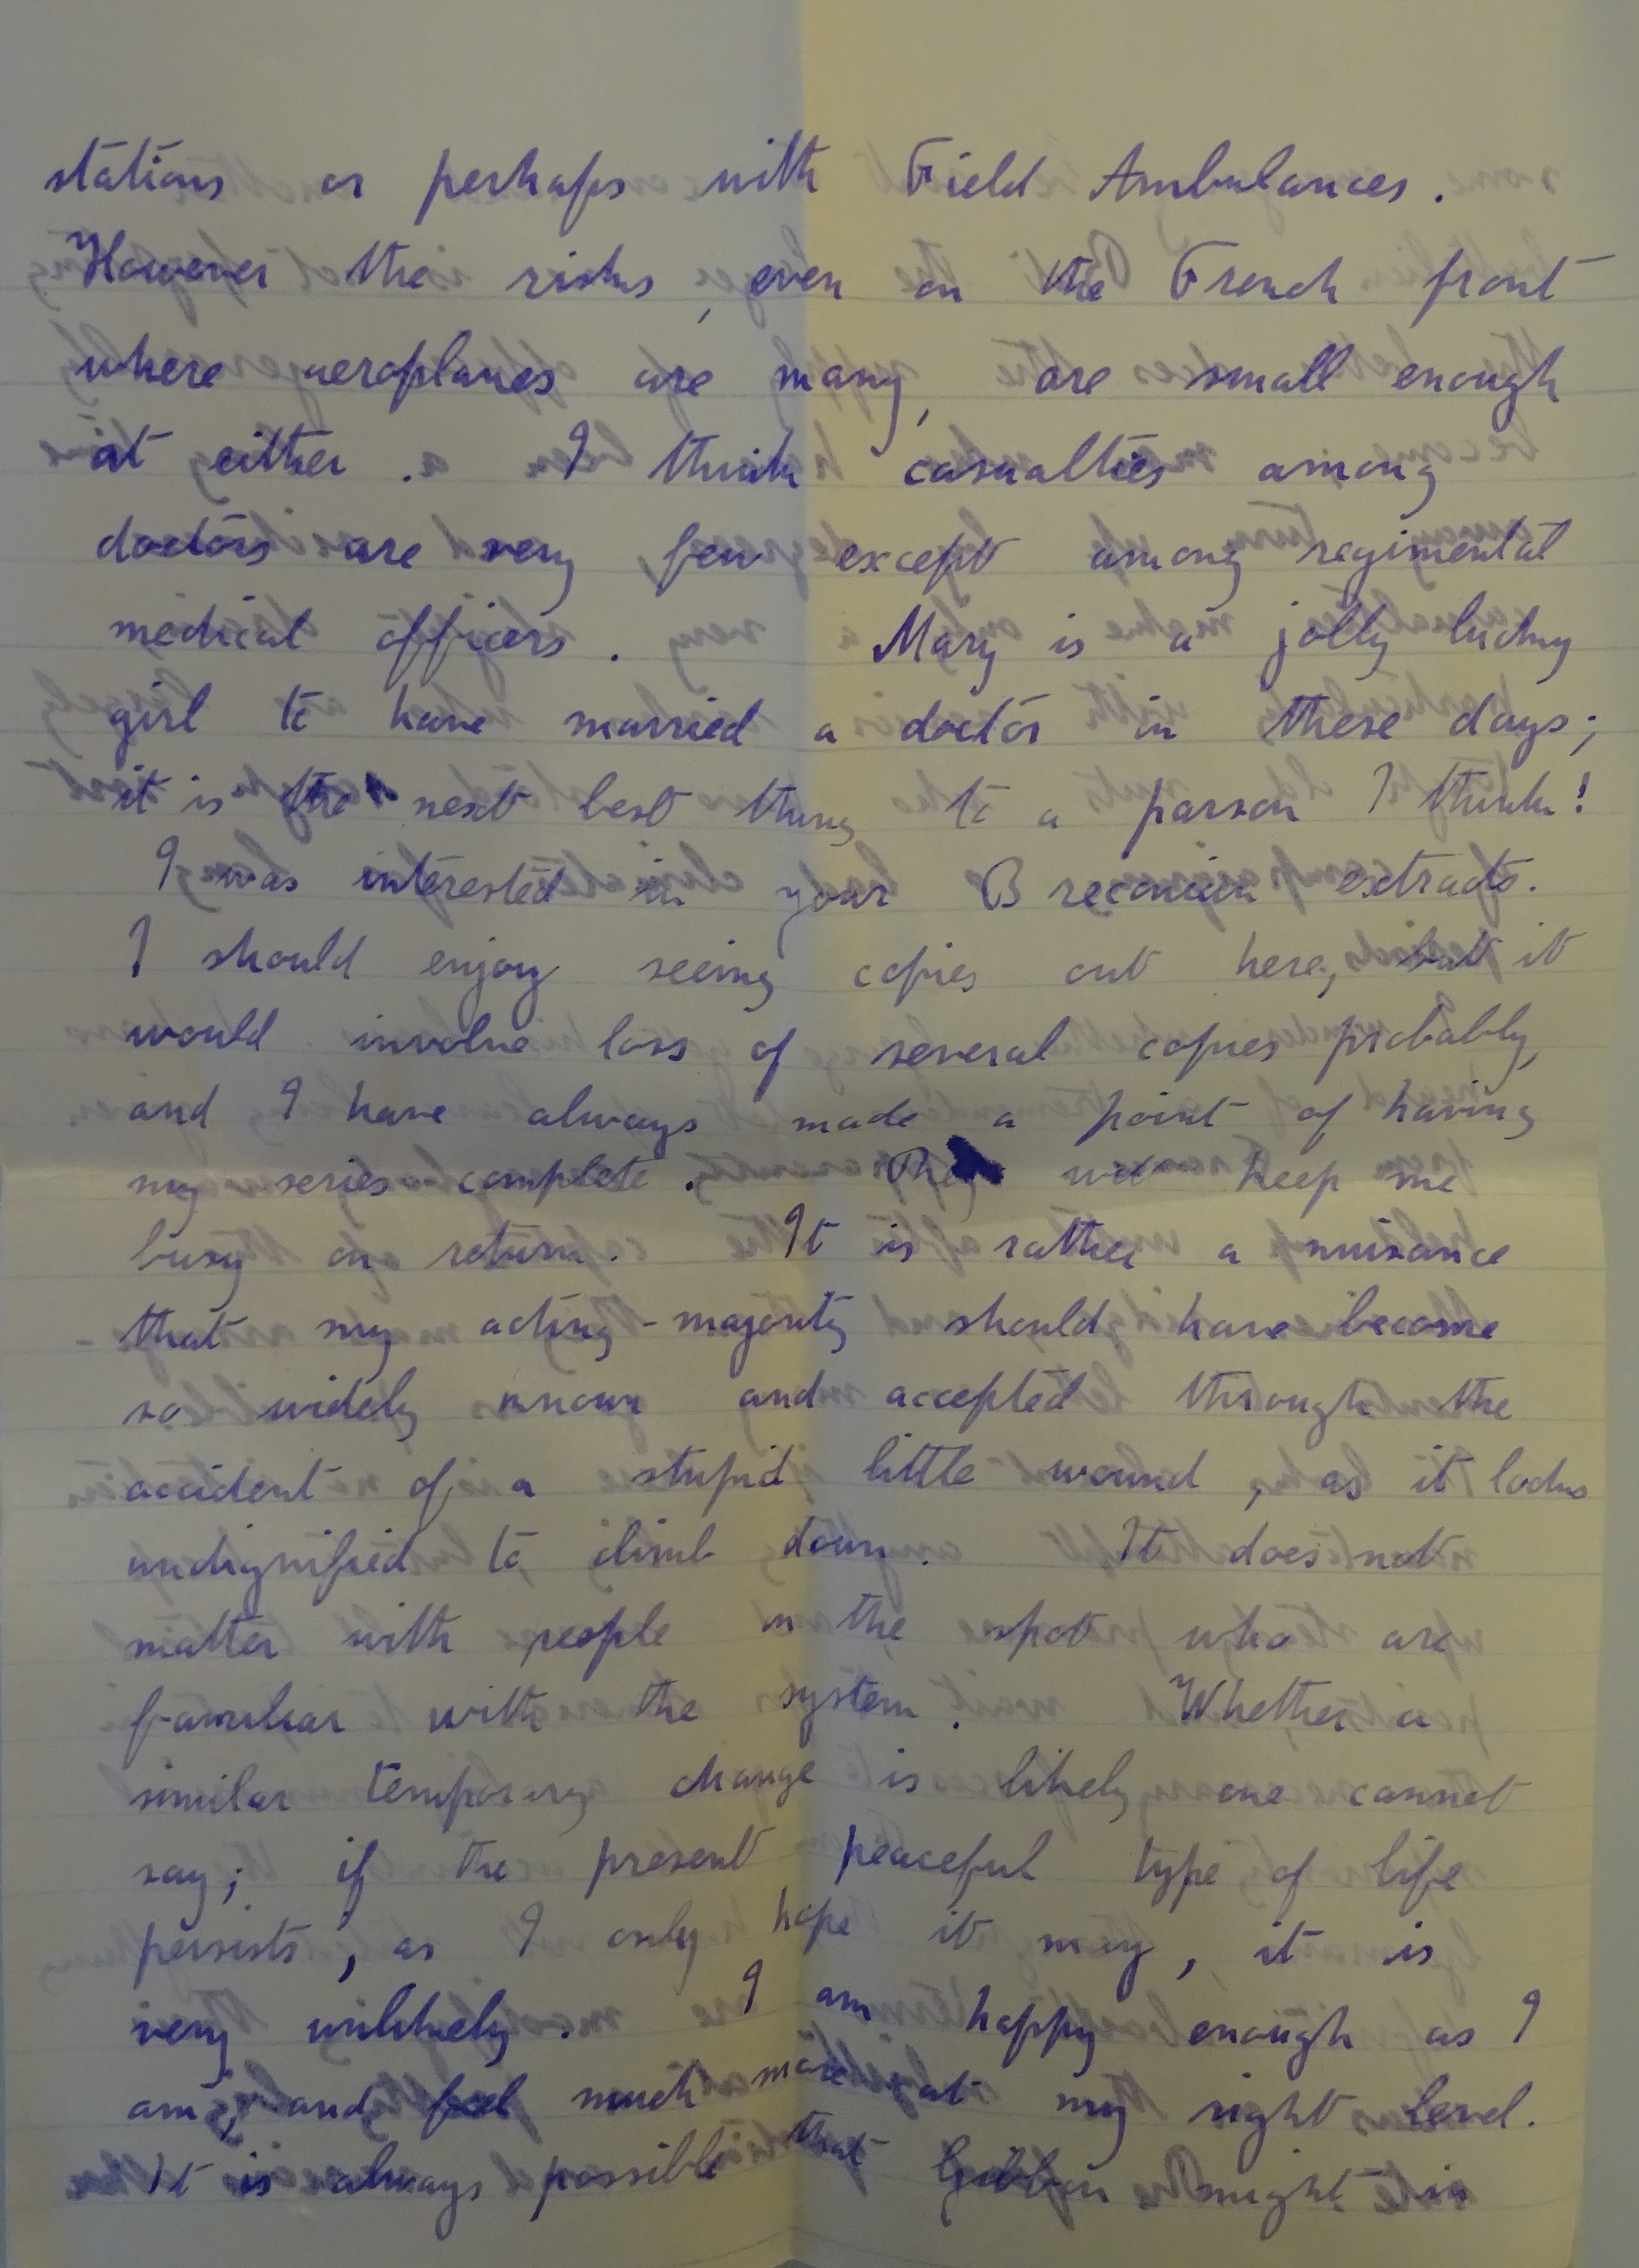 stations or perhaps with Field Ambulances.
However the risks, even on the French front
where aeroplanes are many, are small enough
at either. I think casualties among
doctors are very few except among regimental
medical officers. Mary is a jolly lucky
girl to have married a doctor in these days;
it is the next best thing to a parson I think!
I was interested in your Breconian extracts.
I should enjoy seeing copies out here, but it
would involve loss of several copies probably,
and I have always made a point of having
my series complete. They will keep me
busy on return. It is rather a nuisance
that my acting-majority should have become
so widely known and accepted through the
accident of a stupid little wound, as it looks
undignified to climb down. It does not
matter with people on the spot who are
familiar with the system. Whether a
similar temporary change is likely one cannot
say; if the present peaceful type of life
persists, as I only hope it may, it is
very unlikely. I am happy enough as I
am, and feel much more at my right level.
It is always possible that might in